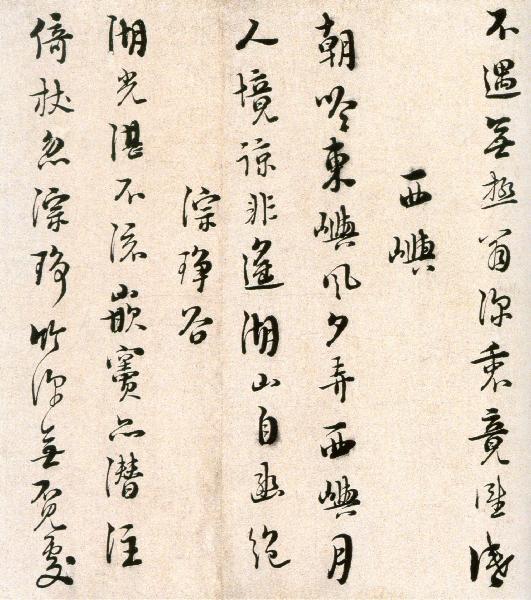 不遇無極翁深衷竟誰識
西嶼
朝吟東嶼風夕弄西嶼月
人境諒非遙湖山自幽絕
淙琤谷
湖光湛不流嵌竇亦潛注
倚杖忽淙琤竹深無覓處